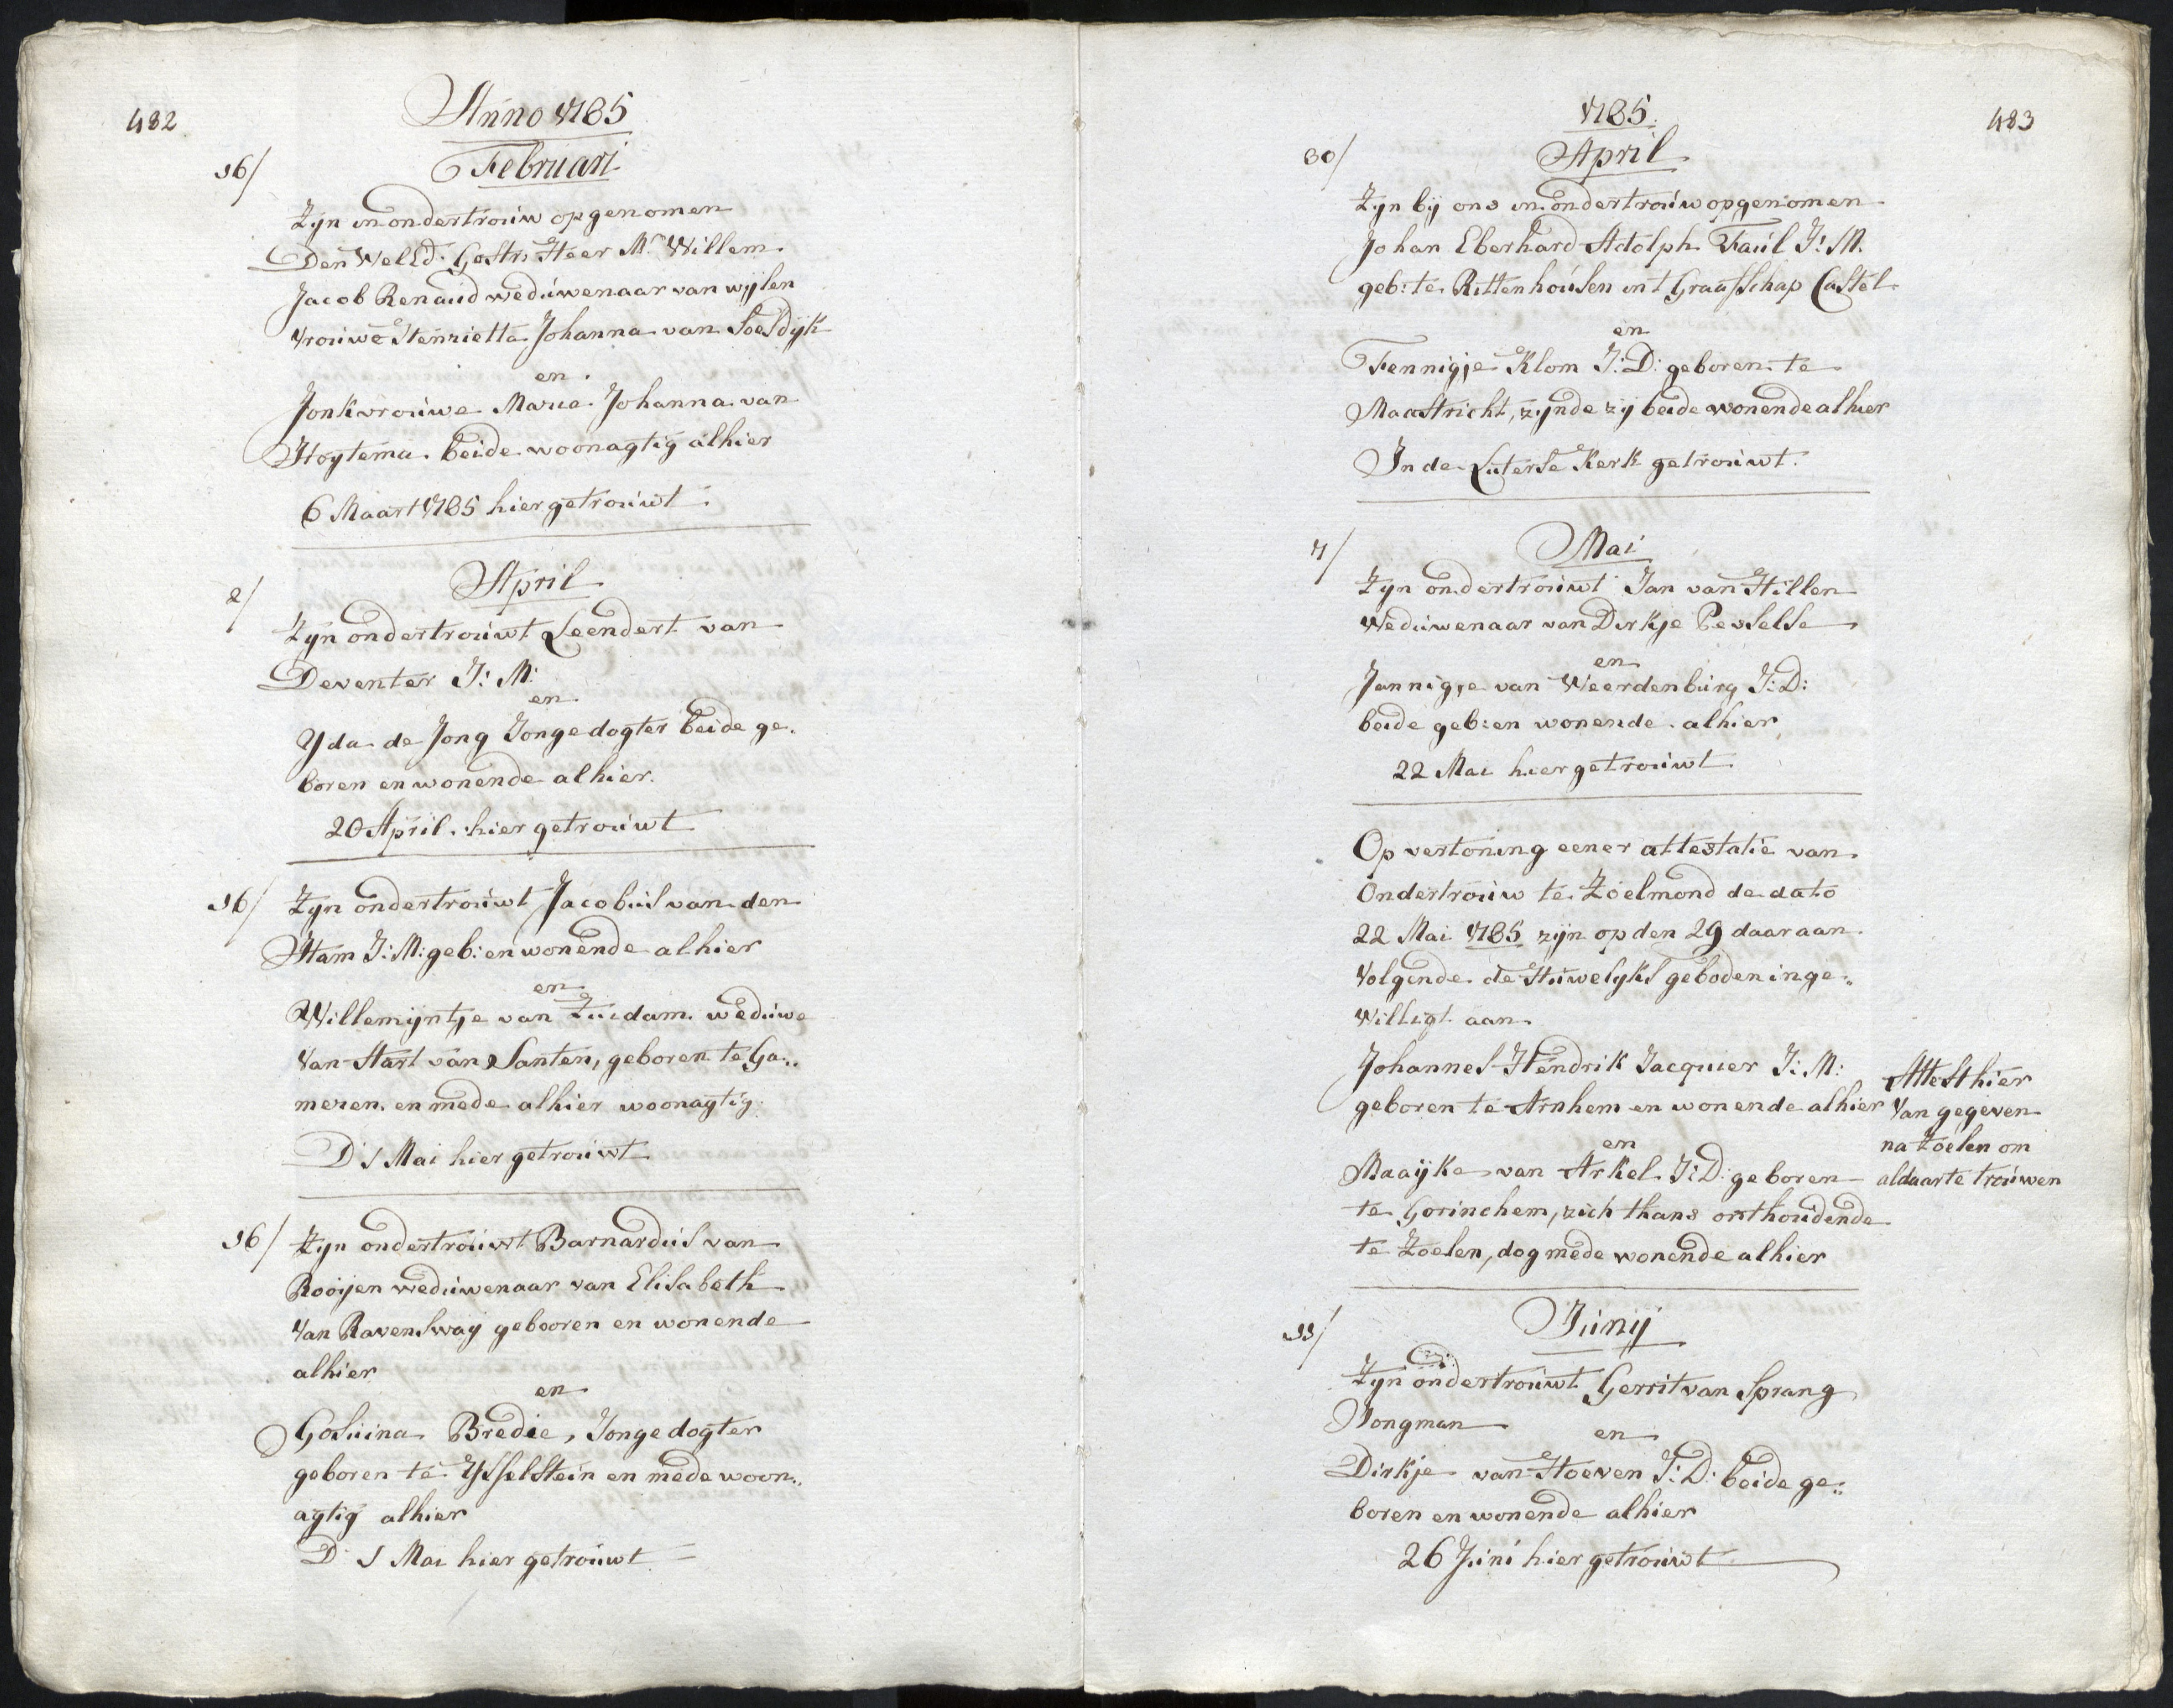 482
Anno 1785
16/
Februari
Zijn in ondertrouw opgenomen
Den WelEd. Gestr. Heer Mr. Willem
Jacob Renaud weduwenaar van wijlen
Vrouwe Henrietta Johanna van Soesdijk
en
Jonkvrouwe Maria Johanna van
Hoytema beide woonagtig alhier
6 Maart 1785 hier getrouwt.
April
2/
Zijn ondertrouwt Leendert van
Deventer J: M:
en
Yda de Jong Jonge dogter beide ge-
boren en wonende alhier.
20 April hier getrouwt
16/
Zijn ondertrouwt Jacobus van den
Ham J: M: geb: en wonende alhier
en
Willemijntje van Zuidam weduwe
Van Hart van Santen, geboren te Ga-
meren en mede alhier woonagtig.
D: 1 Mai hier getrouwt
16/
Zijn ondertrouwt Barnardus van
Rooijen weduwenaar van Elisabeth
Van Ravenswaij gebooren en wonende
alhier
en
Gosuina Bredie, Jonge dogter
geboren te Ysselstein en mede woon-
agtig alhier
D: 1 Mai hier getrouwt
1785.
483
30/
April
Zijn bij ons in ondertrouw opgenomen
Johan Eberhard Adolph Faul J: M.
geb: te Rittenhousen int Graafschap Castel
en
Fennigje Klom J: D: geboren te
Maastricht, zijnde zij beide wonende alhier
In de Luterse Kerk getrouwt.
7/
Mai
Zijn ondertrouwt Jan van Hillen
Weduwenaar van Dirkje Peuselse
en
Jannigje van Weerdenburg J: D:
beide geb: en wonende alhier
22 Mai hier getrouwt
Op vertoning eener attestatie van
Ondertrouw te Zoelmond de dato
22 Mai 1785 zijn op den 29 daar aan
Volgende de Huwelyks geboden inge-
Willigt aan
Johannes Hendrik Jacquier J: M:
geboren te Arnhem en wonende alhier
en
Maaijke van Arkel J: D: geboren
te Gorinchem, zich thans onthoudende
te Zoelen, dog mede wonende alhier
Attest hier
Van gegeven
na Zoelen om
aldaar te trouwen
11/
Junij
Zijn ondertrouwt Gerrit van Sprang
Jongman
en
Dirkje van Hoeven J: D: beide ge-
boren en wonende alhier
26 Juni hier getrouwt